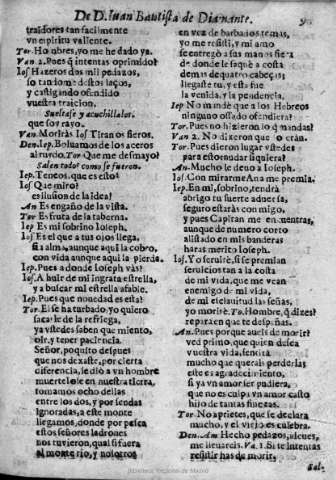 De D. Iuan Bautista de Diamante.
traidores tan facilmente
vn espiritu valiente.
Tor. Hombres, yo me he dado ya.
Van. 2. Pues q̃ intentas oprimido?
Ios. Hazeros dos mil pedaços,
so tan lomo dos los laços,
y castigando ofendido
vuestra traicion.
Sueltase y acuchillalos.
que soy rayo.
Van. Moriràs Ios. Tiranos fieros.
Den. Iep. Boluamos de los aceros
al ruido. Tor. Que me desmayo!
Salen todos como se fueron.
Iep. Teneos, que es esto?
Ios. Que miro!
es ilusion de la idea?
An. Es engaño de la vista.
Tor. Es fruta de la taberna.
Iep. Es mi sobrino Ioseph.
Ios. Es el que a tus ojos llega,
si a alma, aunque aqui la cobro,
con vida aunque aqui la pierda.
Iep. Pues a donde Ioseph vàs?
Ios. A huir de mi ingrata estrella,
y a buscar mi estrella afable.
Iep. Pues que nouedad es esta?
Tor. El se ha turbado, yo quiero
sacarle de la refriega,
ya vstedes saben que miento,
oìr, y tener paciencia.
Señor, poquito despues
que nos dexaste, por cierta
diferencia, le diò a vn hombre
muerte Iosef en nuestra tierra,
tomamos ocho dellas
entre los dos, y por sendas
ignoradas, a este monte
llegamos, donde por pesca
estos señores ladrones
nos tuvieron, qual si fuera
al monte rio, y nosotros
en vez de barbados temas,
yo me resisti, y mi amo
se entregò a sus manos fiera
de donde le saquè a costa
demas de quatro cabeças;
llegaste tu, y esta fue
la venida, y la pendencia.
Iep No mandè que a los Hebreos
ninguno ossado ofendiera?
Tor. Pues no hizieron lo q̃ mandas?
Van 2. No dixeron que lo eran.
Tor. Pues dieron lugar vstedes
para estornudar siquiera?
An. Mucho le deuo a Ioseph.
Ios. Con mirarme Ana me premia.
Iep. En mi, sobrino, tendrà
abrigo tu fuerte aduersa,
seguro estaràs con migo,
pues Capitan me en mentras,
aunque de numero corto
alistado en mis banderas
haràs merito Ioseph.
Ios. Yo seruirè, si se premian
seruicios tan a la costa
de mi vida, que me vean
enemigo de mi vida,
de mi esclauitud las señas,
y yo morirè. To. Hombre, q̃ dizes?
repara en que te despeñas.
An. Pues porque aueis de morir?
ved primo, que quien desea
vuestra vida, sentirà
mucho que querais perderla;
este es agradecimiento,
si ya vn amor ser pudiera,
que no es culpa vn amor casto
hijo de tantas finezas.
Tor No aprietes, que se declara
mucho, y el viejo es culebra.
Den. Am Hecho pedazos, aleues,
me lleuareis. Va. 1. Si te intentas
resistir has de morir.
Sal.
Biblioteca Nacional de Madrid